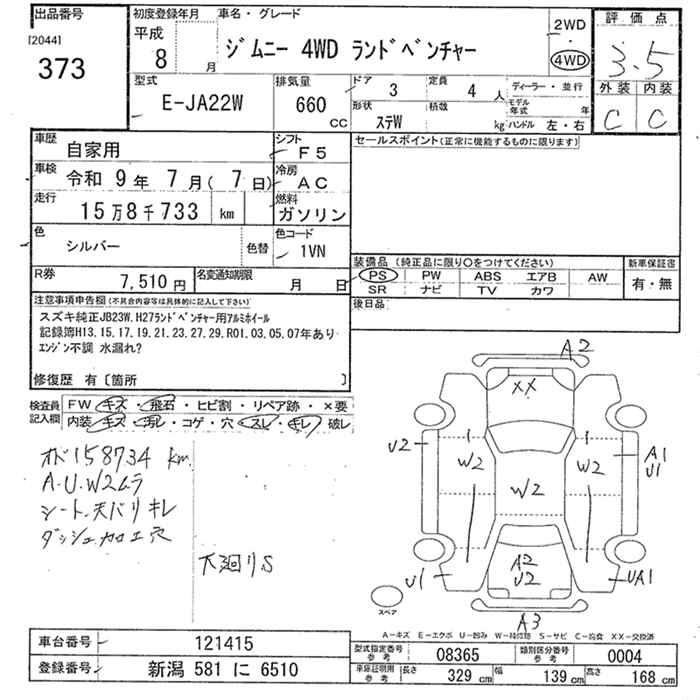 出品番号
[2044]
373
初度登録年月
平成
8 月
車名・グレード
ジムニー 4WD ランドベンチャー
2WD
・
4WD
評価点
3.5
外装 内装
C C
型式
E-JA22W
排気量
660
CC
ドア
3
定員
4 人
ディーラー・並行
形状
ステW
積載
kg
モデル年式 年
ハンドル 左・右
車歴
自家用
シフト
F5
セールスポイント(正常に機能するものに限ります)
車検
令和 9 年 7 月( 7 日)
冷房
AC
走行
15万8千733 km
燃料
ガソリン
色
シルバー
色替
色コード
1VN
装備品 (純正品に限り○をつけてください)
PS PW ABS エアB AW
SR ナビ TV カワ
新車保証書
有・無
R券
7,510 円
名変通知期限
月 日
後日品
注意事項申告欄(不具合内容等は具体的に記入して下さい)
スズキ純正JB23W.H27ランドベンチャー用アルミホイール
記録簿H13.15.17.19.21.23.27.29.R01.03.05.07年あり
エンジン不調 水漏れ?
修復歴 有〔箇所 〕
検査員記入欄
FW キズ・飛石・ヒビ割・リペア跡・×要
内装 キズ・汚レ・コゲ・穴・スレ・キレ・破レ
オド158734 km
A.U.W2ムラ
シート.天バリキレ
ダッシュ加工穴
下廻りS
A2
XX
U2
W2
W2
A1
U1
W2
A2
U2
U1
UA1
A3
スペア
A−キズ E−エクボ U−凹み W−補修跡 S−サビ C−腐食 XX−交換済
車台番号
121415
登録番号
新潟 581 に 6510
型式指定番号
参考
08365
類別区分番号
参考
0004
車庫証明用
参考
長さ 329 cm
幅 139 cm
高さ 168 cm